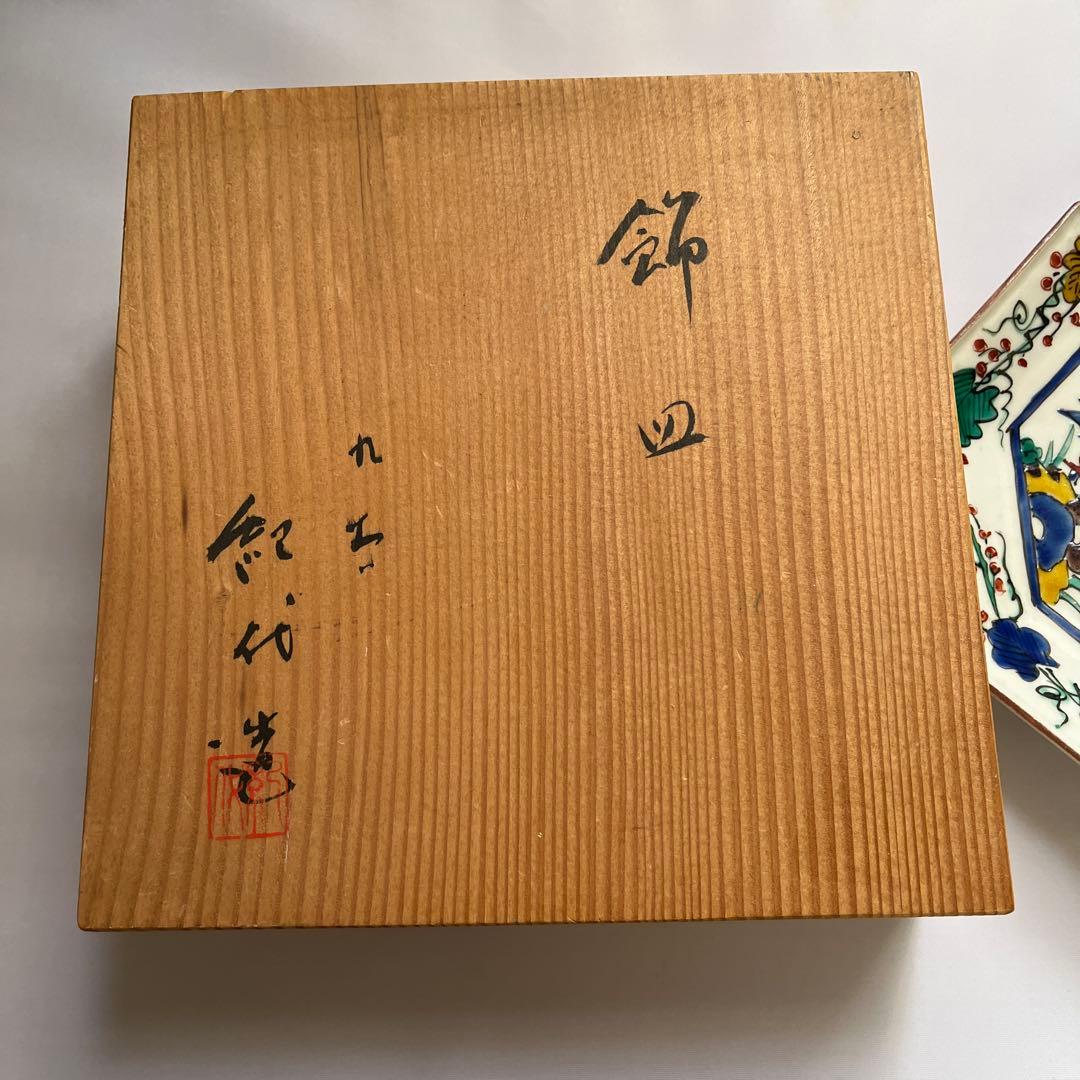 飾皿
九谷
紀代造